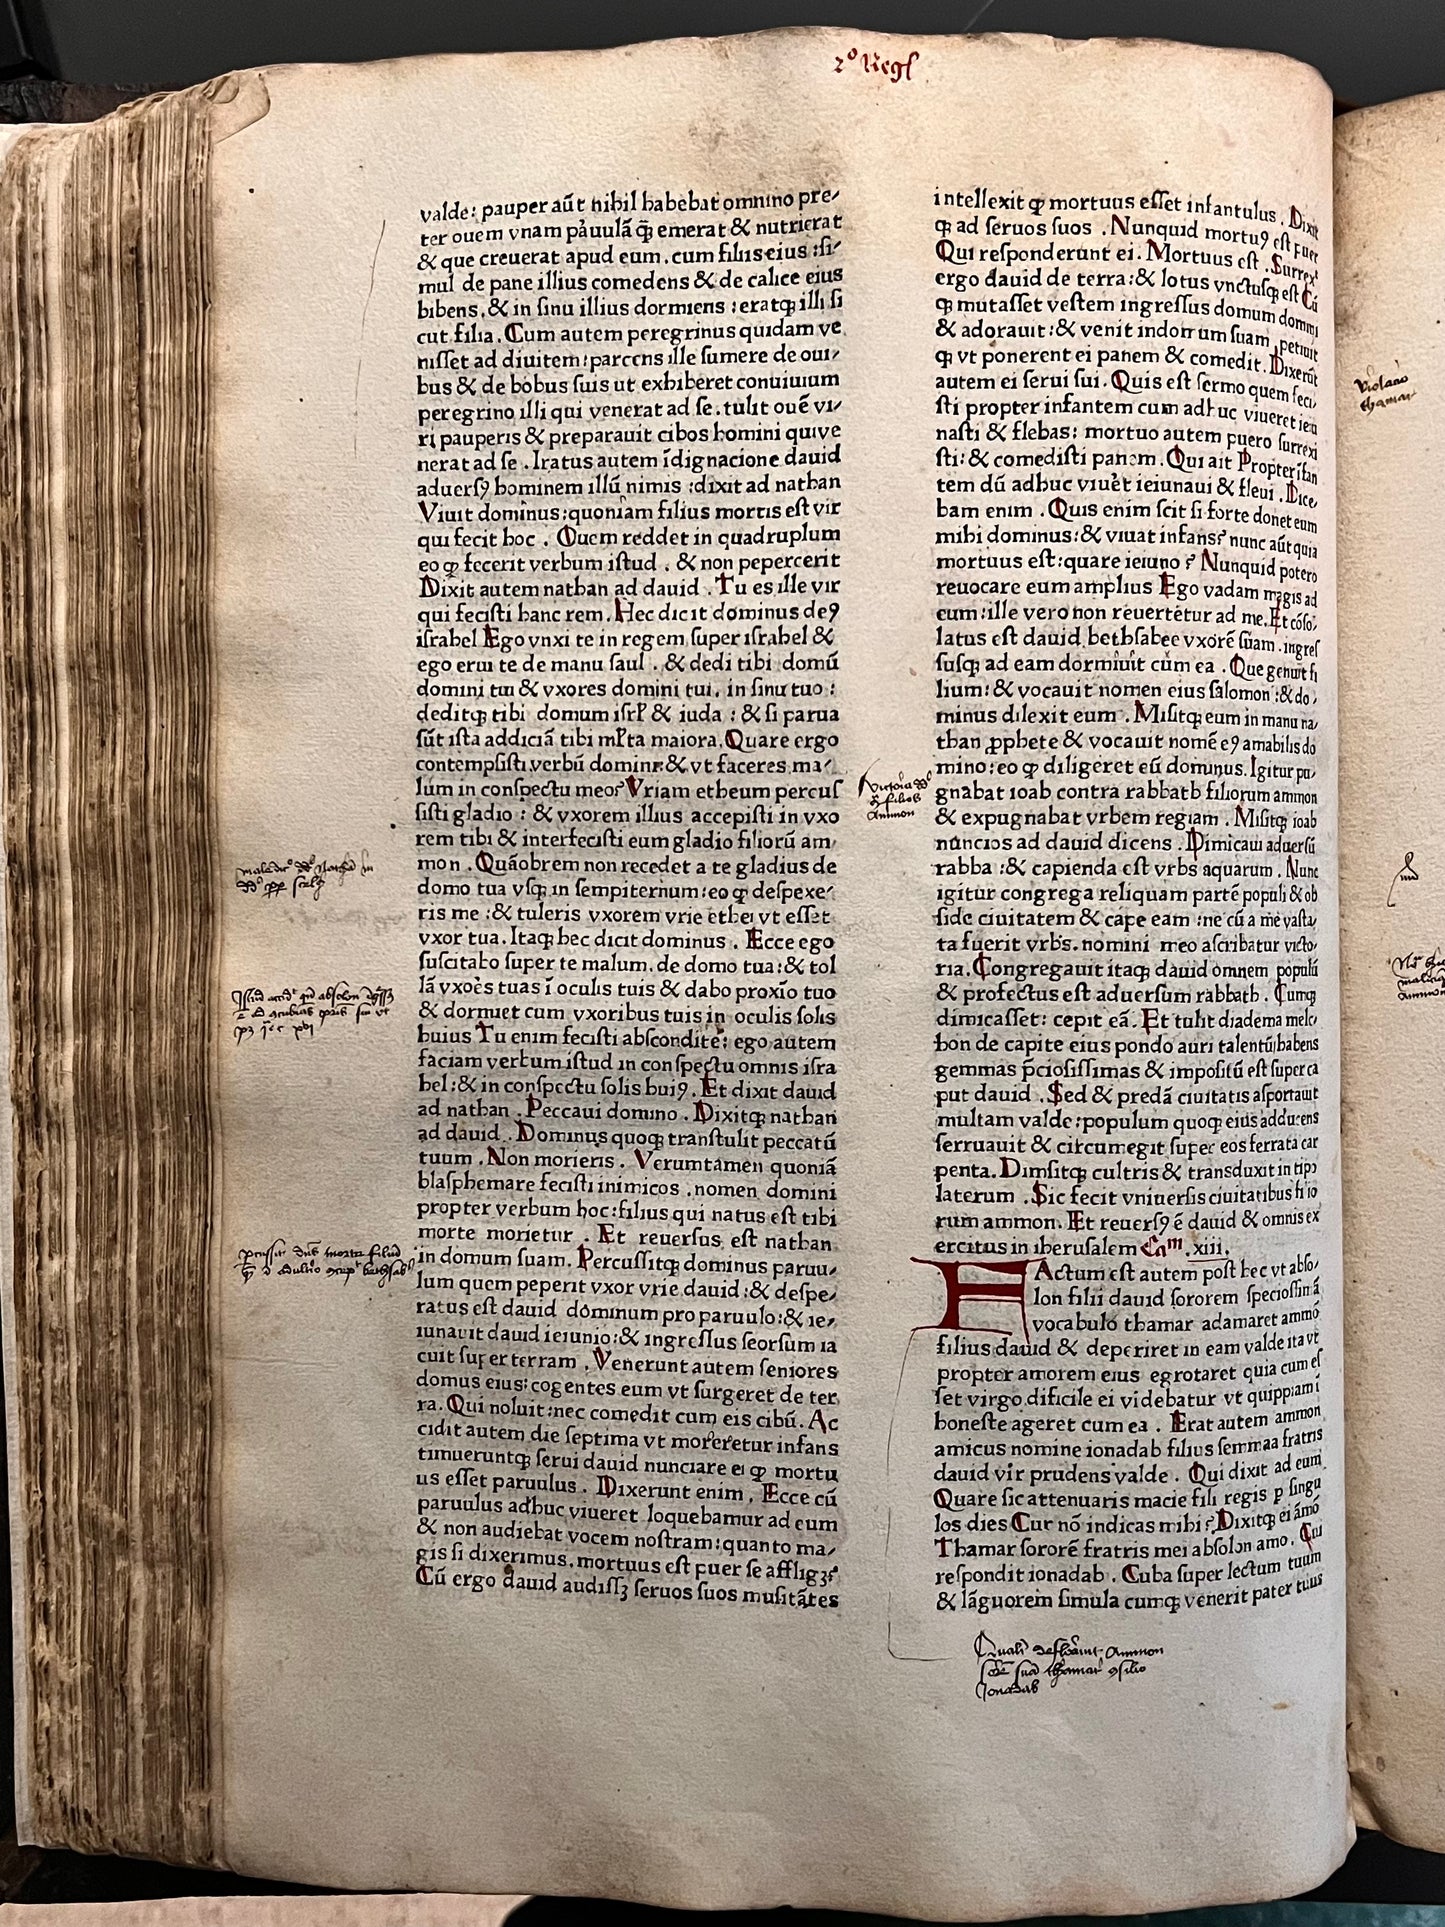 2º Regꝭ
valde: pauper aūt nihil habebat omnino pre⸗
ter ouem vnam paruulā q̄ emerat & nutrierat
& que creuerat apud eum. cum filiis eius : ſi⸗
mul de pane illius comedens & de calice eius
bibens, & in ſinu illius dormiens : eratqꝫ illi ſi
cut filia. Cum autem peregrinus quidam ve
niſſet ad diuitem: parcens ille ſumere de oui⸗
bus & de bobus ſuis ut exhiberet conuiuium
peregrino illi qui venerat ad ſe. tulit ouē vi⸗
ri pauperis & preparauit cibos homini qui ve
nerat ad ſe . Iratus autem īdignacione dauid
aduerſꝰ hominem illū nimis : dixit ad nathan
Viuit dominus: quoniam filius mortis eſt vir
qui fecit hoc . Ouem reddet in quadruplum
eo ꝙ fecerit verbum iſtud . & non pepercerit
Dixit autem nathan ad dauid . Tu es ille vir
qui feciſti hanc rem. Hec dicit dominus deꝰ
iſrahel Ego vnxi te in regem ſuper iſrahel &
ego erui te de manu ſaul . & dedi tibi domū
domini tui & vxores domini tui. in ſinu tuo :
deditqꝫ tibi domum iſrl̄ & iuda : & ſi parua
ſūt iſta addiciā tibi ml̄ta maiora. Quare ergo
contempſiſti verbū domini: & vt faceres ma⸗
lum in conſpectu meo? Vriam etheum percuſ
ſiſti gladio : & vxorem illius accepiſti in vxo
rem tibi & interfeciſti eum gladio filiorū am⸗
mon . Quāobrem non recedet a te gladius de
domo tua vſqꝫ in ſempiternum: eo ꝙ deſpexe⸗
ris me : & tuleris vxorem vrie ethei vt eſſet
vxor tua. Itaqꝫ hec dicit dominus . Ecce ego
ſuſcitabo ſuper te malum. de domo tua: & tol
lā vxores tuas ī oculis tuis & dabo proxīo tuo
& dormiet cum vxoribus tuis in oculis ſolis
huius Tu enim feciſti abſcondite: ego autem
faciam verbum iſtud in conſpectu omnis iſra
hel: & in conſpectu ſolis huiꝰ. Et dixit dauid
ad nathan . Peccaui domino . Dixitqꝫ nathan
ad dauid . Dominus quoqꝫ tranſtulit peccatū
tuum . Non morieris . Verumtamen quoniā
blaſphemare feciſti inimicos . nomen domini
propter verbum hoc: filius qui natus eſt tibi
morte morietur . Et reuerſus eſt nathan
in domum ſuam. Percuſſitqꝫ dominus paruu⸗
lum quem peperit vxor vrie dauid : & deſpe⸗
ratus eſt dauid dominum pro paruulo: & ie⸗
iunauit dauid ieiunio: & ingreſſus ſeorſum ia
cuit ſuper terram . Venerunt autem ſeniores
domus eius: cogentes eum vt ſurgeret de ter
ra. Qui noluit: nec comedit cum eis cibū. Ac
cidit autem die ſeptima vt moreretur infans
timueruntqꝫ ſerui dauid nunciare ei ꝙ mortu
us eſſet paruulus . Dixerunt enim . Ecce cū
paruulus adhuc viueret loquebamur ad eum
& non audiebat vocem noſtram: quanto ma⸗
gis ſi dixerimus. mortuus eſt puer ſe affligꝫ?
Cū ergo dauid audiſſꝫ ſeruos ſuos muſitātes
intellexit ꝙ mortuus eſſet infantulus . Dixit
qꝫ ad ſeruos ſuos . Nunquid mortuꝰ eſt puer
Qui reſponderunt ei. Mortuus eſt . Surrexit
ergo dauid de terra: & lotus vnctuſqꝫ eſt Cū
qꝫ mutaſſet veſtem ingreſſus domum domini
& adorauit: & venit in domum ſuam . petiuit
qꝫ vt ponerent ei panem & comedit. Dixerūt
autem ei ſerui ſui. Quis eſt ſermo quem feci⸗
ſti propter infantem cum adhuc viueret ieiu
naſti & flebas: mortuo autem puero ſurrexi
ſti: & comediſti panem. Qui ait Propter īfan
tem dū adhuc viuēt ieiunaui & fleui . Dice⸗
bam enim . Quis enim ſcit ſi forte donet eum
mihi dominus: & viuat infans? nunc aūt quia
mortuus eſt: quare ieiuno ? Nunquid potero
reuocare eum amplius Ego vadam magis ad
eum: ille vero non reuertetur ad me. Et cōſo⸗
latus eſt dauid bethſabee vxorē ſuam . ingreſ
ſuſqꝫ ad eam dormiuit cum ea . Que genuit fi
lium: & vocauit nomen eius ſalomon : & do⸗
minus dilexit eum . Miſitqꝫ eum in manu na⸗
than ꝓphete & vocauit nomē eꝰ amabilis do
mino: eo ꝙ diligeret eū dominus. Igitur pu⸗
gnabat ioab contra rabbath filiorum ammon
& expugnabat vrbem regiam . Miſitqꝫ ioab
nuncios ad dauid dicens . Dimicaui aduerſū
rabba : & capienda eſt vrbs aquarum . Nunc
igitur congrega reliquam partē populi & ob
ſide ciuitatem & cape eam : ne cū a me vaſta⸗
ta fuerit vrbs. nomini meo aſcribatur victo⸗
ria. Congregauit itaqꝫ dauid omnem populū
& profectus eſt aduerſum rabbath . Cumqꝫ
dimicaſſet: cepit eā. Et tulit diadema melc⸗
hon de capite eius pondo auri talentū habens
gemmas p̄cioſiſſimas & impoſitū eſt ſuper ca
put dauid . Sed & predā ciuitatis aſportauit
multam valde: populum quoqꝫ eius adducens
ſerruauit & circumegit ſuper eos ferrata car
penta. Dimſitqꝫ cultris & transduxit in tipo
laterum . Sic fecit vniuerſis ciuitatibus filio
rum ammon. Et reuerſꝰ ē dauid & omnis ex
ercitus in iheruſalem Caᵐ. xiii.
FActum eſt autem poſt hec vt abſo⸗
lon filii dauid ſororem ſpecioſſimā
vocabulo thamar adamaret ammō
filius dauid & deperiret in eam valde ita vt
propter amorem eius egrotaret quia cum eſ
ſet virgo. dificile ei videbatur vt quippiam ī
honeſte ageret cum ea . Erat autem ammon
amicus nomine ionadab filius ſemmaa fratris
dauid vir prudens valde . Qui dixit ad eum
Quare ſic attenuaris macie fili regis p ſingu
los dies Cur nō indicas mihi? Dixitqꝫ ei āmō
Thamar ſororē fratris mei abſolon amo. Cui
reſpondit ionadab . Cuba ſuper lectum tuum
& lāguorem ſimula cumqꝫ venerit pater tuus
violatio
thamar